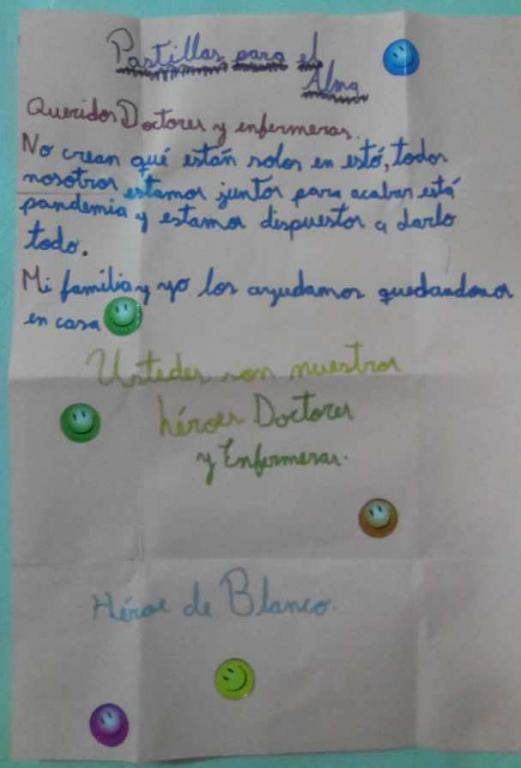 Pastillas para el
Alma
Queridos Doctores y enfermeras.
No crean qué están solos en estó, todos
nosotros estamos juntos para acabar está
pandemia y estamos dispuestos a darlo
todo.
Mi familia y yo los ayudamos quedandonos
en casa
Ustedes son nuestros
héroes Doctores
y Enfermeras.
Héroe de Blanco.